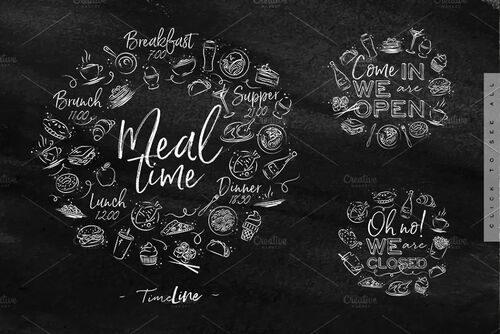 Breakfast
7.00
Brunch
11.00
Supper
21.00
Meal
time
Lunch
12.00
Dinner
18.30
- TimeLine -
Come IN
WE are
OPEN
Oh no!
WE are
CLOSED
CLICK TO SEE ALL
Creative
Market